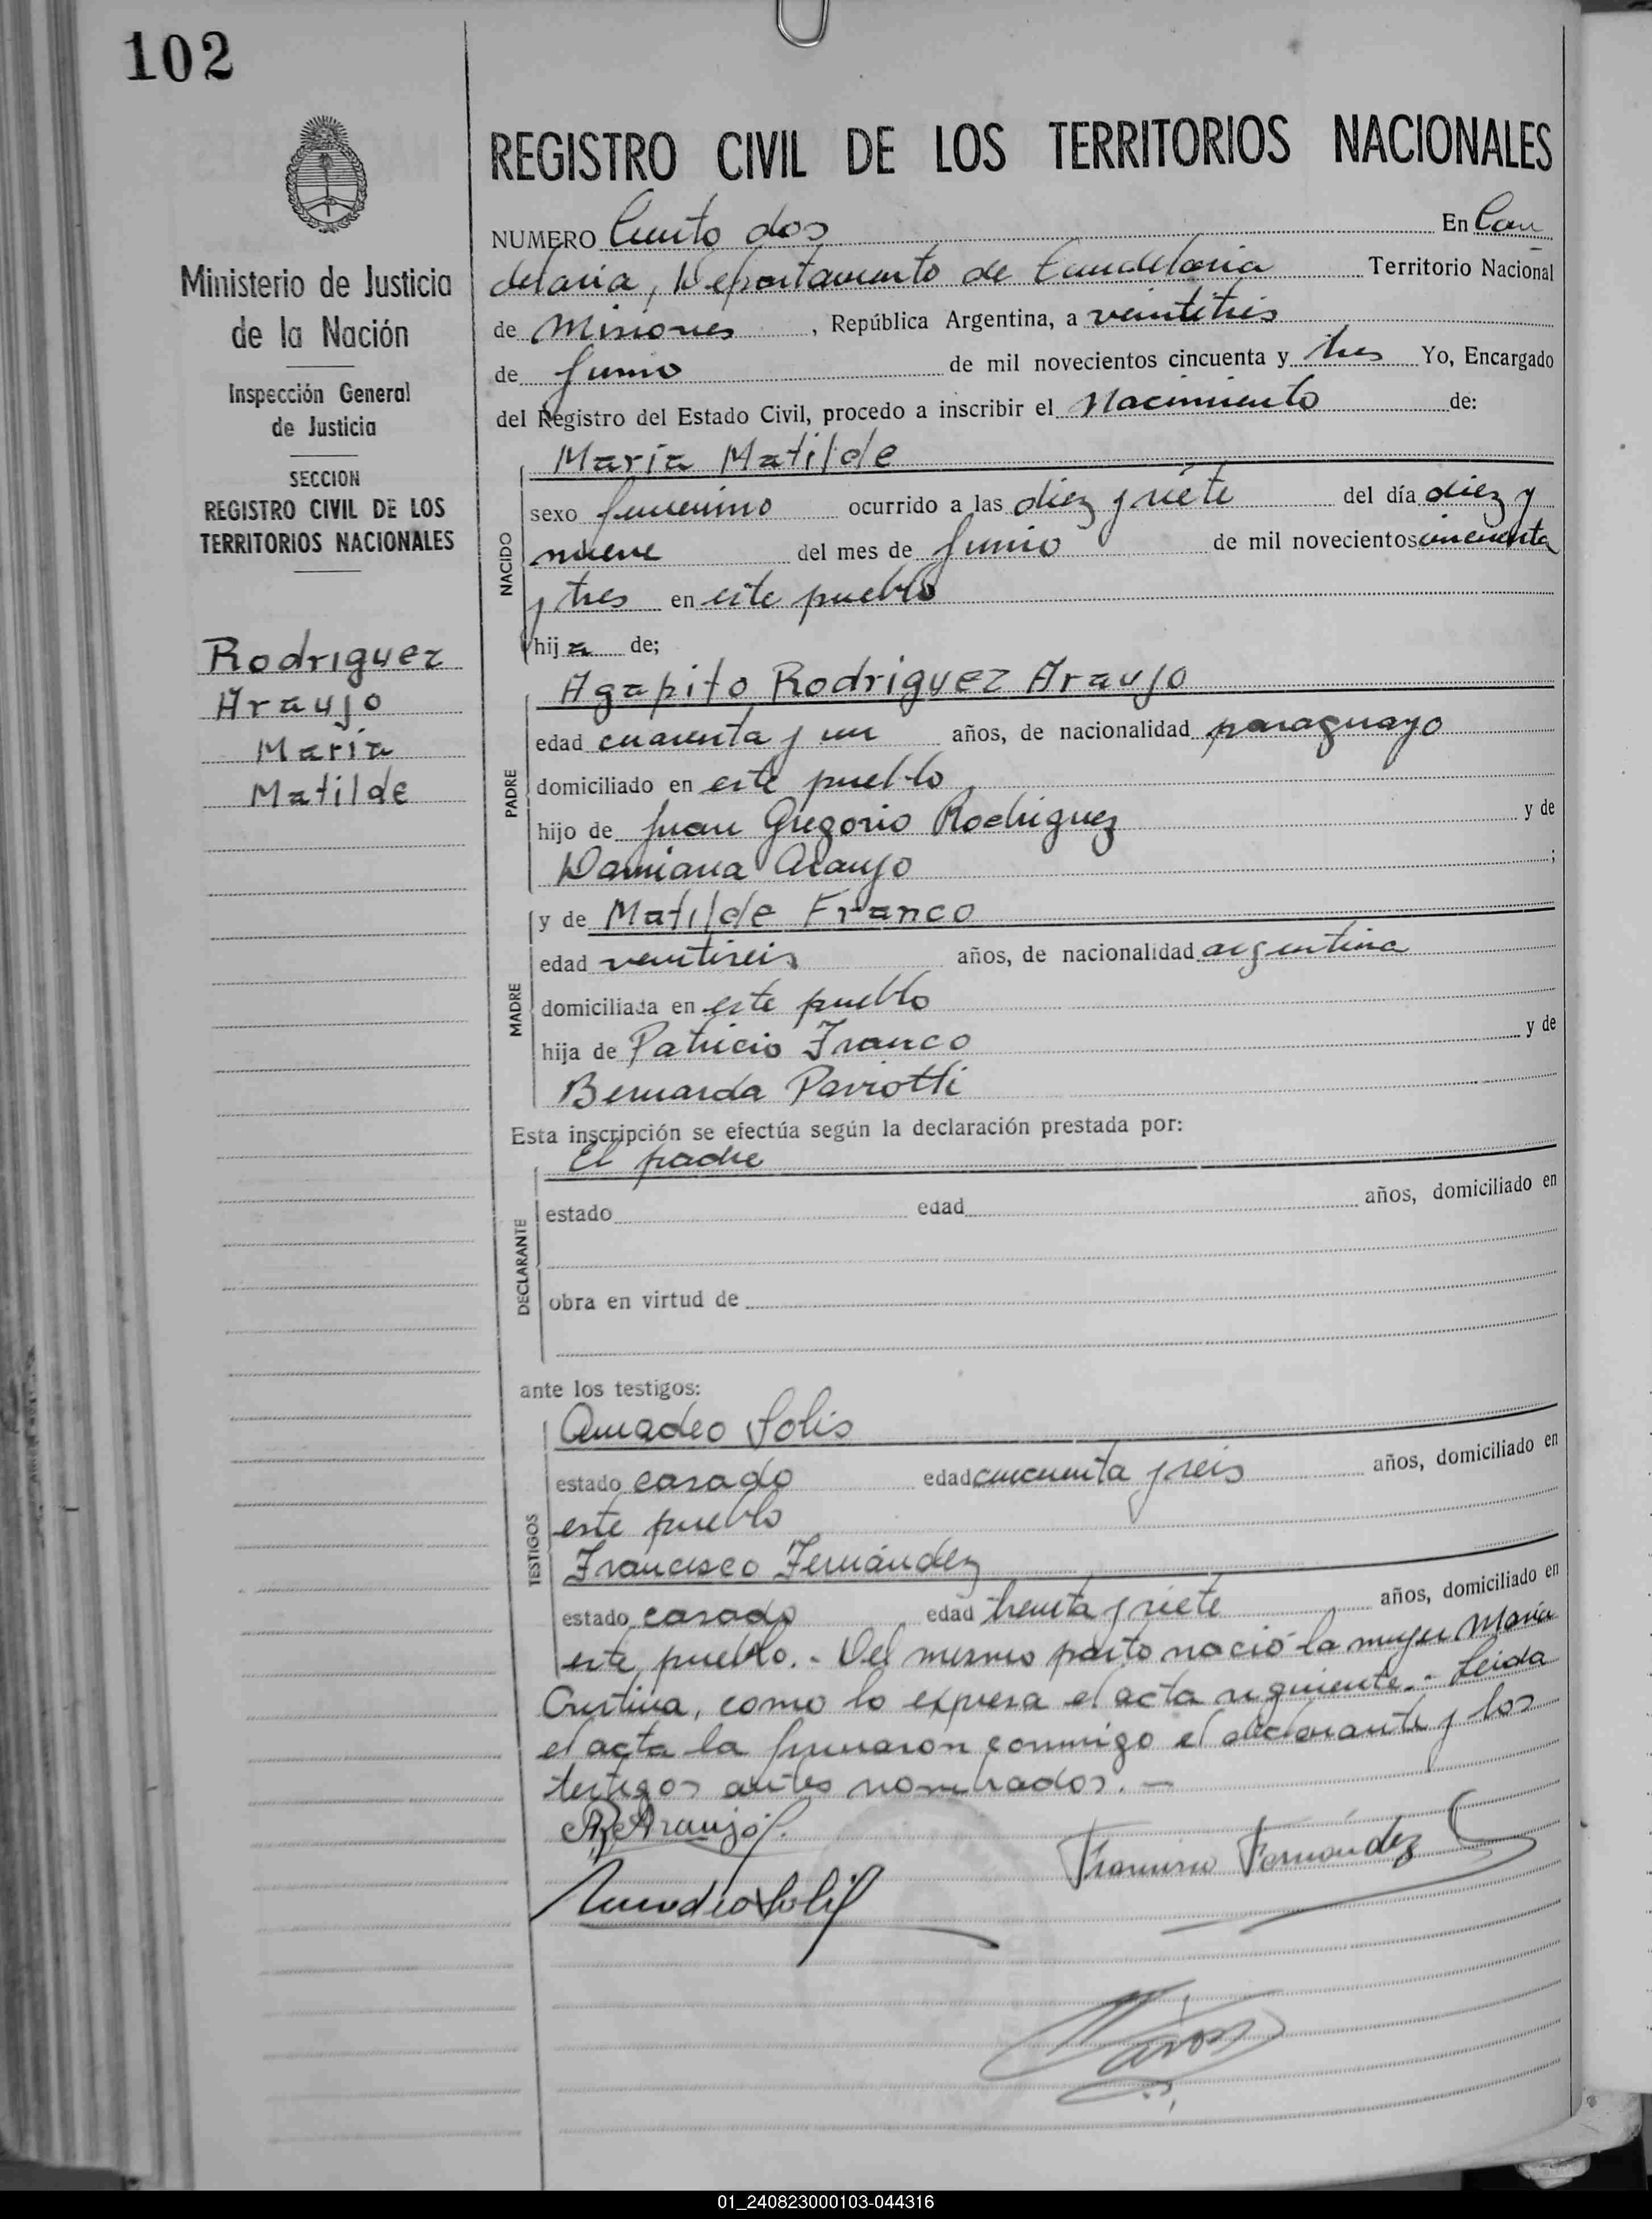 102
REGISTRO CIVIL DE LOS TERRITORIOS NACIONALES
Ministerio de Justicia
de la Nación
Inspección General
de Justicia
SECCION
REGISTRO CIVIL DE LOS
TERRITORIOS NACIONALES
Rodriguez
Araujo
Maria
Matilde
NUMERO Ciento dos En Can
delaria, Departamento de Candelaria Territorio Nacional
de Misiones, República Argentina, a veintitrés
de Junio de mil novecientos cincuenta y tres Yo, Encargado
del Registro del Estado Civil, procedo a inscribir el Nacimiento de:
NACIDO
María Matilde
sexo femenino ocurrido a las diez y siete del día diez y
nueve del mes de Junio de mil novecientos cincuenta
y tres en este pueblo
hija de;
PADRE
Agapito Rodriguez Araujo
edad cuarenta y un años, de nacionalidad paraguayo
domiciliado en este pueblo
hijo de Juan Gregorio Rodriguez y de
Damiana Araujo;
MADRE
y de Matilde Franco
edad veintiseis años, de nacionalidad argentina
domiciliada en este pueblo
hija de Patricio Franco y de
Bernarda
Esta inscripción se efectúa según la declaración prestada por:
DECLARANTE
El padre
estado edad años, domiciliado en
obra en virtud de
ante los testigos:
TESTIGOS
Amadeo Solis
estado casado edad cincuenta y seis años, domiciliado en
este pueblo
Francisco Fernández
estado casado edad treinta y siete años, domiciliado en
este pueblo. - Del mismo parto nació la mujer María
Cristina, como lo expresa el acta siguiente. - Leida
el acta la firmaron conmigo el declarante y los
testigos antes nombrados. -
Araujo
Francisco Fernández
Amadeo Solis
01_240823000103-044316